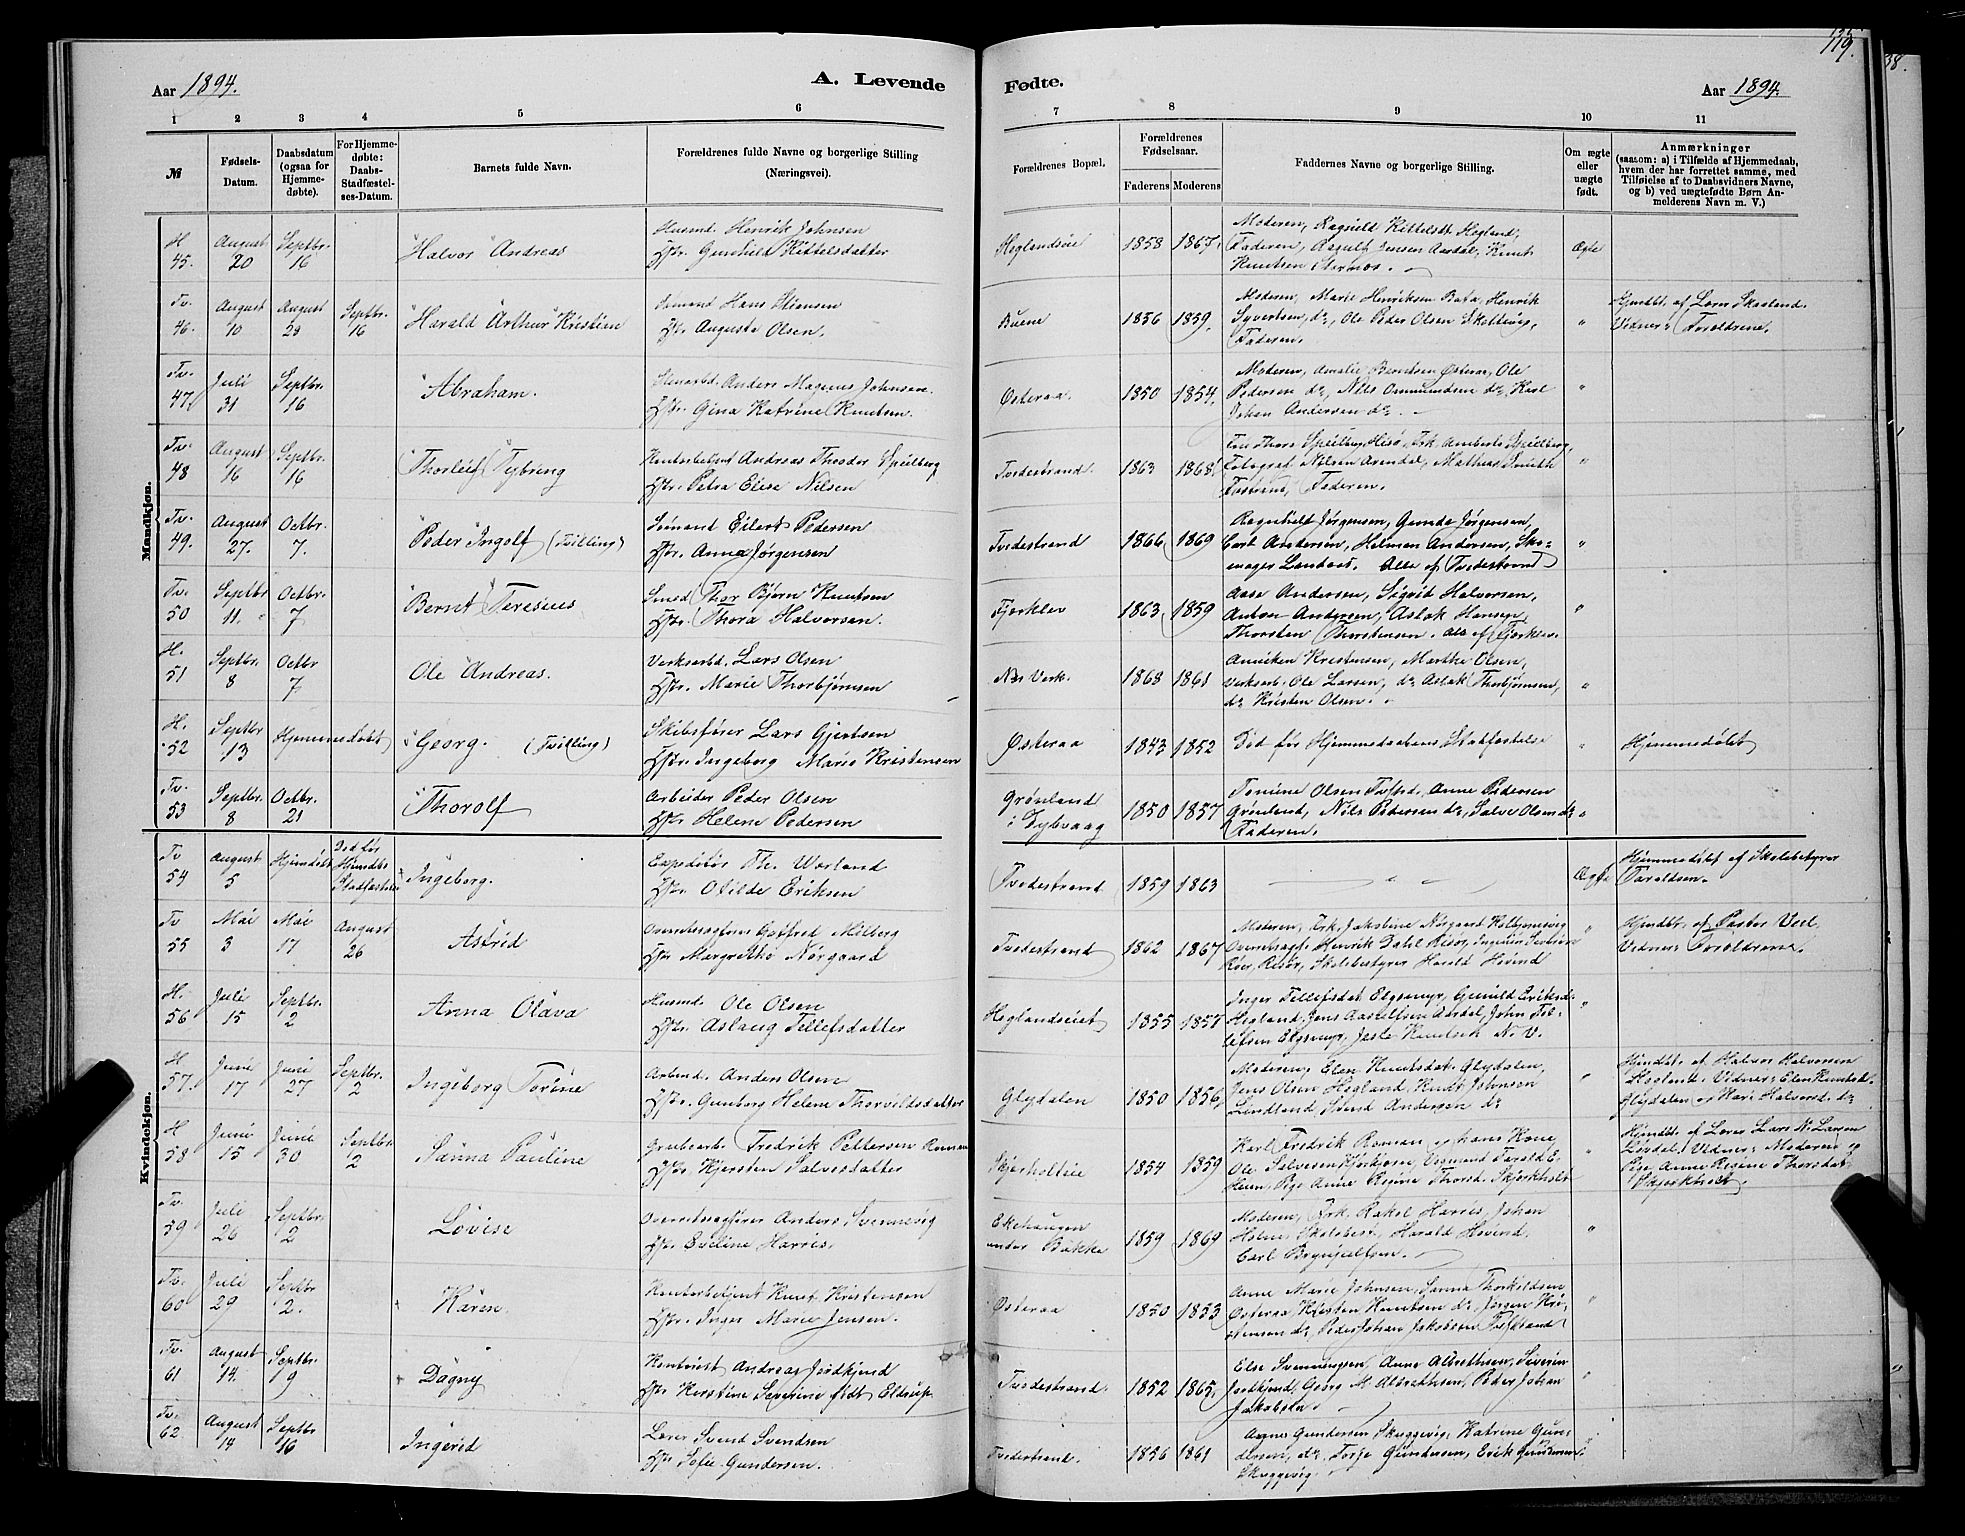 119.
38.
Aar 1894.
A. Levende
Fødte.
Aar 1894.
1 2 3 4 5 6 7 8 9 10 11
№
Fødsels-
Datum.
Daabsdatum
(ogsaa for
Hjemme-
døbte).
For Hjemme-
døbte:
Daabs-
Stadfæstel-
ses-Datum.
Barnets fulde Navn.
Forældrenes fulde Navne og borgerlige Stilling
(Næringsvei).
Forældrenes Bopæl.
Forældrenes
Fødselsaar.
Faderens Moderens
Faddernes Navne og borgerlige Stilling.
Om ægte
eller
uægte
født.
Anmærkninger
(saasom: a) i Tilfælde af Hjemmedaab,
hvem der har forrettet samme, med
Tilføielse af to Daabsvidners Navne,
og b) ved uægtefødte Børn An-
melderens Navn m. V.)
Mandkjøn.
H. 45. August 20 Septbr. 16 Halvor Andreas
Husmd. Henrik Johnsen
Hstr. Gunhild Kittelsdatter
Hoglandseie 1858 1867
Moderen, Ragnild Kittelsdt Hogland,
Faderen, Aasult Jensen Aardal, Knut
Knutsen
Ægte
Tv. 46. August 10 August 29 Septbr. 16 Harald Arthur Kristian
Sømand Hans
Hstr. Auguste Olsen.
Buene 1856 1859.
Moderen, Marie Henriksen Bota, Henrik
Syvertsen, do, Ole Peder Olsen
Faderen.
" Hjmdbt. af Lærer Skaaland.
Vidner: Forældrene.
Tv. 47. Juli 31 Septbr. 16 Abraham.
Anders Magnus Johnsen.
Hstr. Gina Katrine Knutsen.
Østeraa. 1850 1854.
Moderen, Amalie Berntsen Østeraa, Ole
Pedersen do, Nils Osmundsen do, Karl
Johan Andersen do.
"
Tv. 48 August 16 Septbr. 16 Thorleif Tybring
Kontorbetjent Andreas Theodor Speilberg
Hstr. Petra Elise Nilsen
Tvedestrand. 1863 1868
Fru Thora Speilberg Hisø, Frk. Amberta Speilberg,
Fotograf Nilsen Arendal, Mathias Smith
Faderen.
"
Tv. 49. August 27. Octbr. 7. Peder Ingolf (Tvilling)
Sømand Eilert Pedersen
Hstr. Anna Jørgensen
Tvedestrand 1866 1869
Ragnhild Jørgensen, Gunda Jørgensen,
Carl Andersen, Helman Andersen, Sko-
mager Alle af Tvedestrand
"
Tv. 50 Septbr 11. Octbr. 7 Bernt Teresius
Smed Thor Bjørn Knutsen
Hstr. Thora Halvorsen.
Fjærklev 1863 1859
Aase Andersen, Sigrid Halvorsen,
Anton Andersen, Aslak Hansen,
Thorsten Thorstensen. Alle af Fjærklev.
"
H. 51 Septbr. 8 Octbr 7 Ole Andreas.
Verksarbd. Lars Olsen
Hstr. Marie Thorbjørnsen
Næs Verk. 1868 1861
Anniken Kristensen, Marthe Olsen,
Verksarb. Ole Larsen, do Aslak Thorbjørnsen,
do Kristen Olsen.
"
H. 52 Septbr 13 Hjemmedøbt Georg. (Tvilling)
Skibsfører Lars Gjertsen
Hstr. Ingeborg Marie Kristensen
Østeraa 1843 1852
Død før Hjemmedaabens Stadfæstelse
" Hjemmedøbt
Tv. 53 Septbr. 8 Octbr. 21 Thorolf
Arbeider Peder Olsen
Hstr Helene Pedersen
Grønland
i Dybvaag 1850 1857
Tomine Olsen Tvstrd., Anne Pedersen
Grønland, Nils Petersen do, Salve Olsen do
Faderen.
"
Kvindekjøn.
Tv 54 August 5 Hjmdøbt Død før
Hjmdbs
Stadfæstelse Ingeborg.
Expeditør Th. Worland
Hstr. Otilde Eriksen
Tvedestrand 1859 1863
Ægte Hjemmedøbt af Skolebestyrer
Taraldsen.
Tv 55 Mai 3 Mai 17 August 26 Astrid
Overretssagfører Gotfred Milberg
Hstr Margrethe Nørgaard
Tvedestrand 1862 1867
Moderen, Frk. Jakobine Nørgaard
Overretssagf. Henrik Dahl Risør, Ingeniør
Risør, Skolebestyrer Harald Hovind
" Hjmdbt. af Pastor Veel
Vidner: Forældrene.
H. 56 Juli 15 Septbr. 2 Anna Olava
Husmd. Ole Olsen
Hstr. Aslaug Tellefsdatter
Hoglandseiet 1855 1857
Inger Tellefsdat Elgsmyr, Gunild Eriksd.
Hogland, Jens Aasulfsen Aardal, John Tel-
lefsen Elgsmyr, Knutsen N. V.
"
H 57. Juni 17 Juni 27 Septbr. 2 Ingeborg Torine
Arbeid. Anders Olsen
Hstr. Gunborg Helene Thorvildsdatter
Glydalen 1850 1856
Moderen, Elen Knutsdat Glydalen,
Jens Olsen Hogland, Knut Johnsen
Lindland Svend Andersen do
" Hjmdbt. af Halvor Halvorsen
Hogland. Vidner: Elen Knutsd.
Glydalen og Mari Halvorsd. do
H 58 Juni 15 Juni 30 Septbr. 2 Sanna Pauline
Grubearb. Fredrik Pettersen Roman
Hstr Kjersten Salvesdatter
Skjerholteie 1854 1859
Karl Fredrik Roman og hans Kone,
Ole Salvesen Tarald E.
Heien, Pige Anne Regine Thorsd. Skjerkholt
" Hjmdbt. af Lærer Lars N. Larsen
Vidner: Moderen og
Pige Anne Regine Thorsdat.
Skjerkholt.
Tv 59 Juli 26 Septbr. 2 Lovise
Overretssagfører Anders Svennevig
Hstr. Eveline Harris.
Ekehaugen
under Bakke 1859 1869
Moderen, Frk. Rakel Harris, Johan
Holm, Skolebest. Harald Hovind,
Carl Brynjulfsen.
"
Tv. 60 Juli 29 Septbr 2. Karen.
Kontorbetjent Knut Kristensen
Hstr. Inger Marie Jensen.
Østeraa 1850 1853
Anne Marie Johnsen, Sanna Thorkildsen
Østeraa Kristen Knutsen do Jørgen Kri-
stensen do, Peder Johan Jakobsen Tvstrand
"
Tv. 61 August 14. Septbr. 9 Dagny
Andreas Jordkjend
Hstr Kerstine Severine født Eldrup.
Tvedestrand. 1852 1865.
Else Svenningsen, Anne Albrethsen, Severin
Jordkjend, Georg M. Albrethsen, Peder Johan
Jakobsen.
"
Tv. 62 August 14 Septbr 16 Ingerid
Lærer Svend Svendsen
Hstr Sofie Gundersen.
Tvedestrand. 1856 1861
Agnes Gundersen Skuggevig, Katrine Gun-
dersen, do, Torje Gundersen, Erik Gundersen
Skuggevig.
"